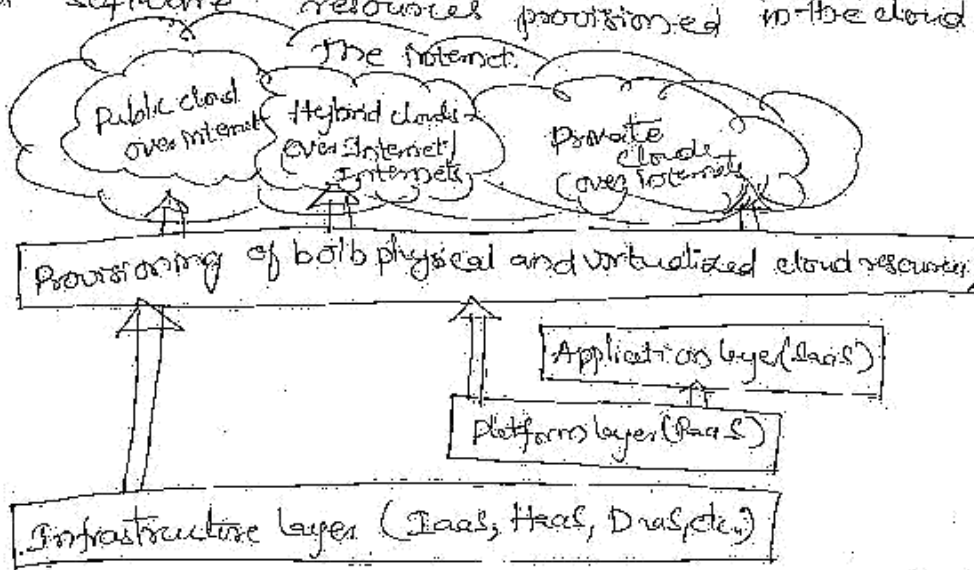 software resources provisioned in the cloud
The internet.
Public cloud
over internet
Hybrid clouds
over Internet/
Internets
Private
clouds
over internets
Provisioning of both physical and virtualized cloud resources
Application layer (SaaS)
Platform layer (PaaS)
Infrastructure Layer (IaaS, HaaS, DaaS, etc.,)